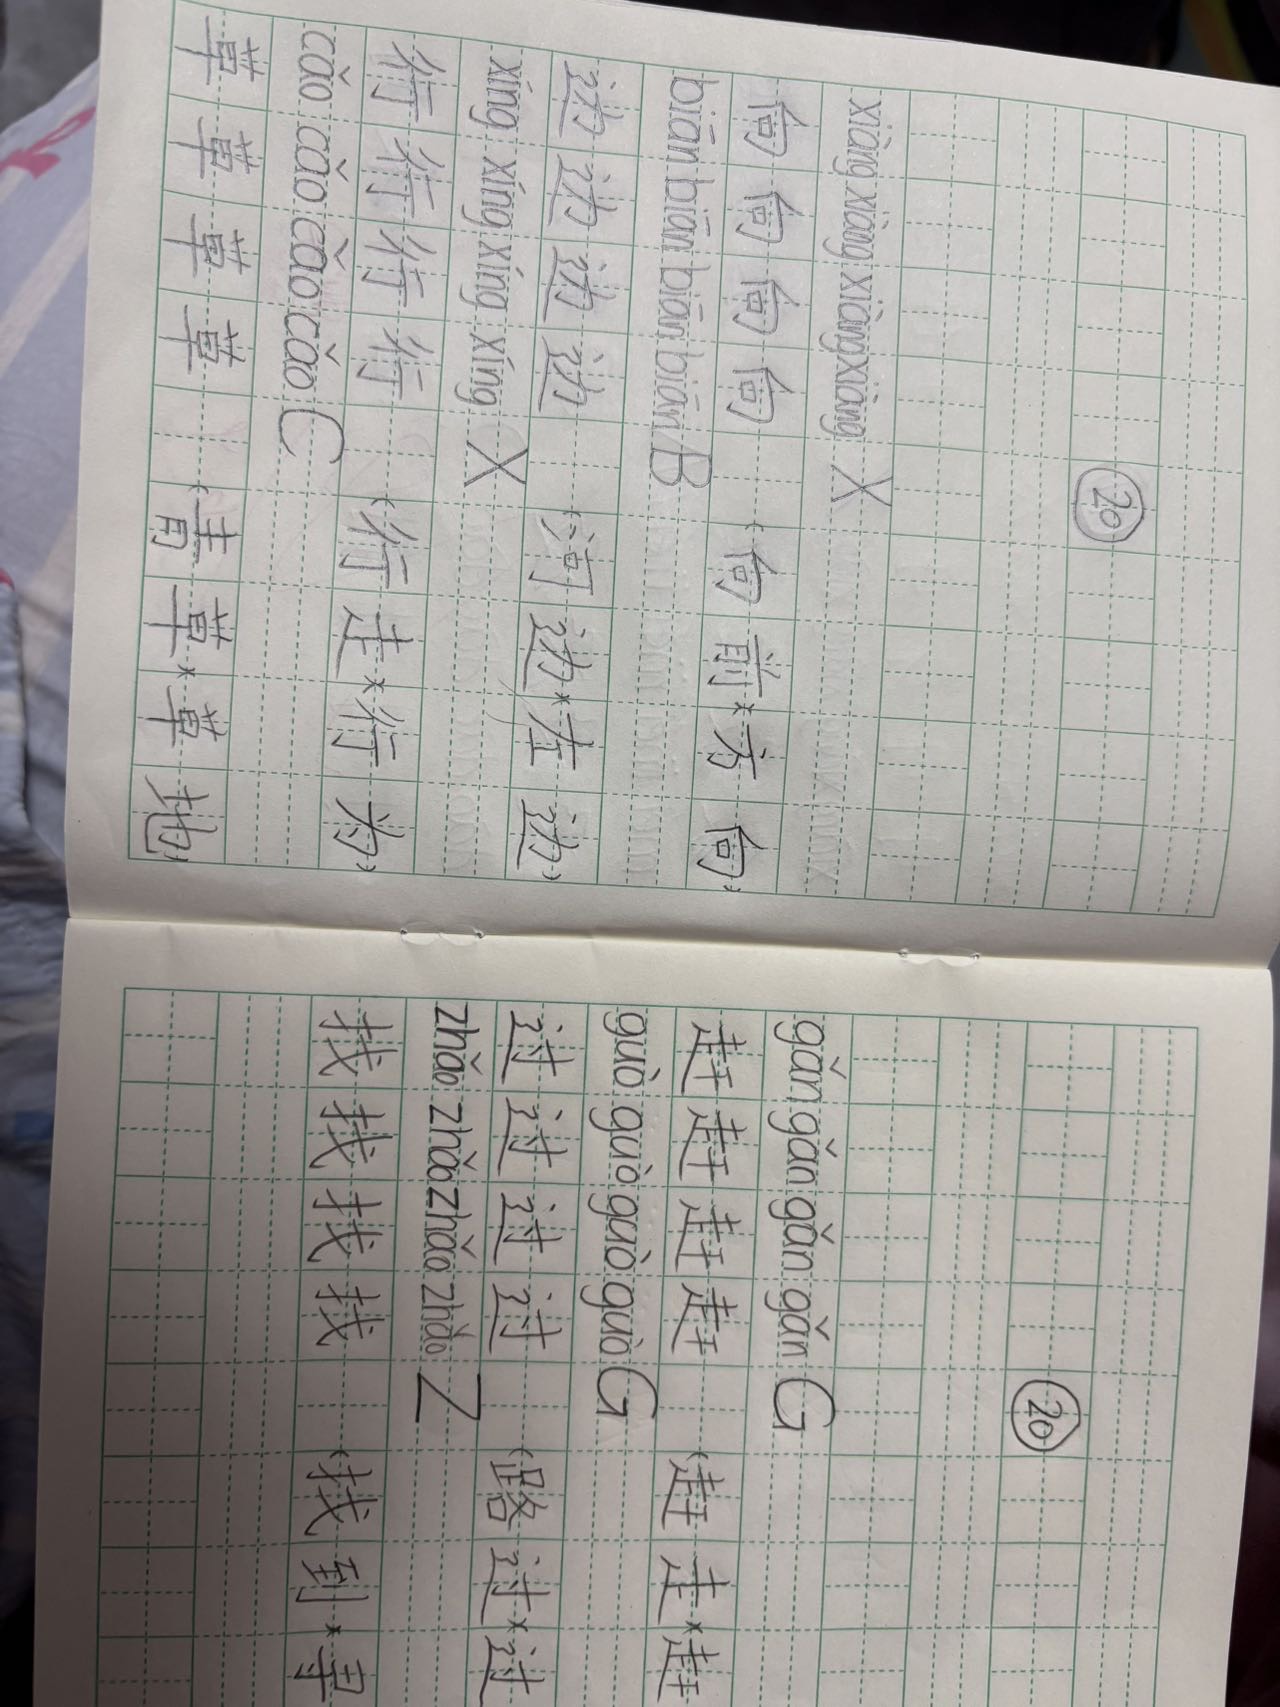 20
xiàng xiàng xiàng xiàng X
向 向 向 向 (向 前 * 方 向)
biān biān biān biān B
边 边 边 边 (河 边 * 左 边)
xíng xíng xíng xíng X
行 行 行 行 (行 走 * 行 为)
cǎo cǎo cǎo cǎo C
草 草 草 草 (青 草 * 草 地)
20
gǎn gǎn gǎn gǎn G
赶 赶 赶 赶 (赶 走 * 赶
guò guò guò guò G
过 过 过 过 (路 过 * 过
zhǎo zhǎo zhǎo zhǎo Z
找 找 找 找 (找 到 * 寻